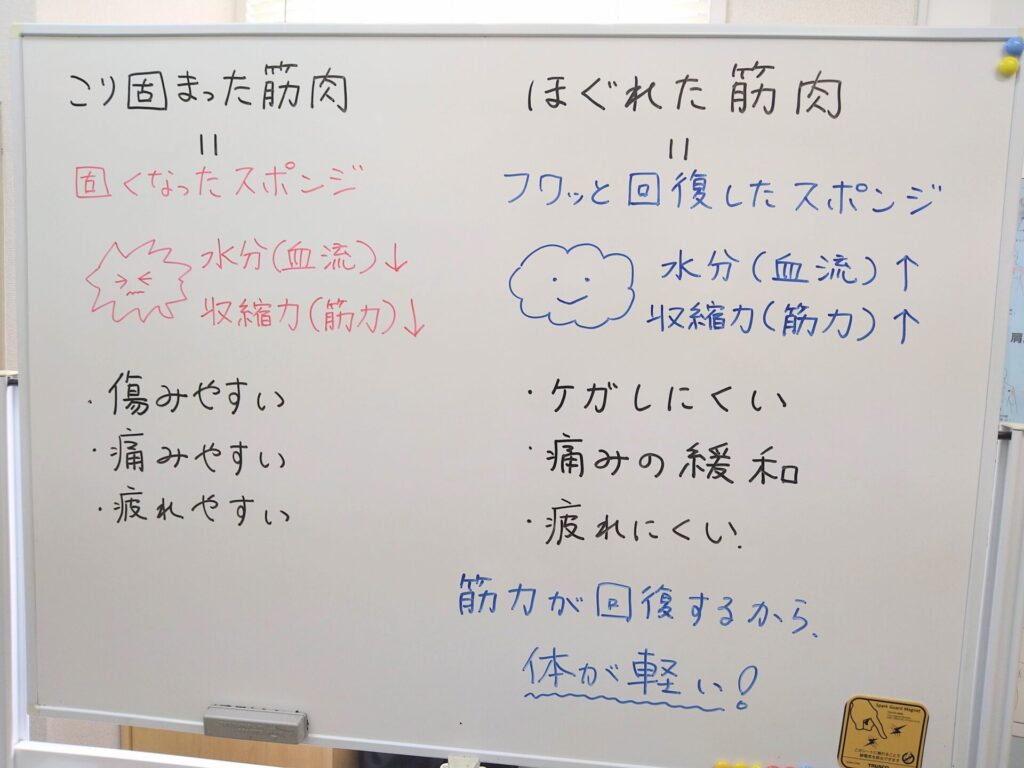 こり固まった筋肉
=
固くなったスポンジ
水分(血流)↓
収縮力(筋力)↓
・傷みやすい
・痛みやすい
・疲れやすい
ほぐれた筋肉
=
フワッと回復したスポンジ
水分(血流)↑
収縮力(筋力)↑
・ケガしにくい
・痛みの緩和
・疲れにくい.
筋力が回復するから、
体が軽い!
Spark Guard Magnet
TRUSCO
肩